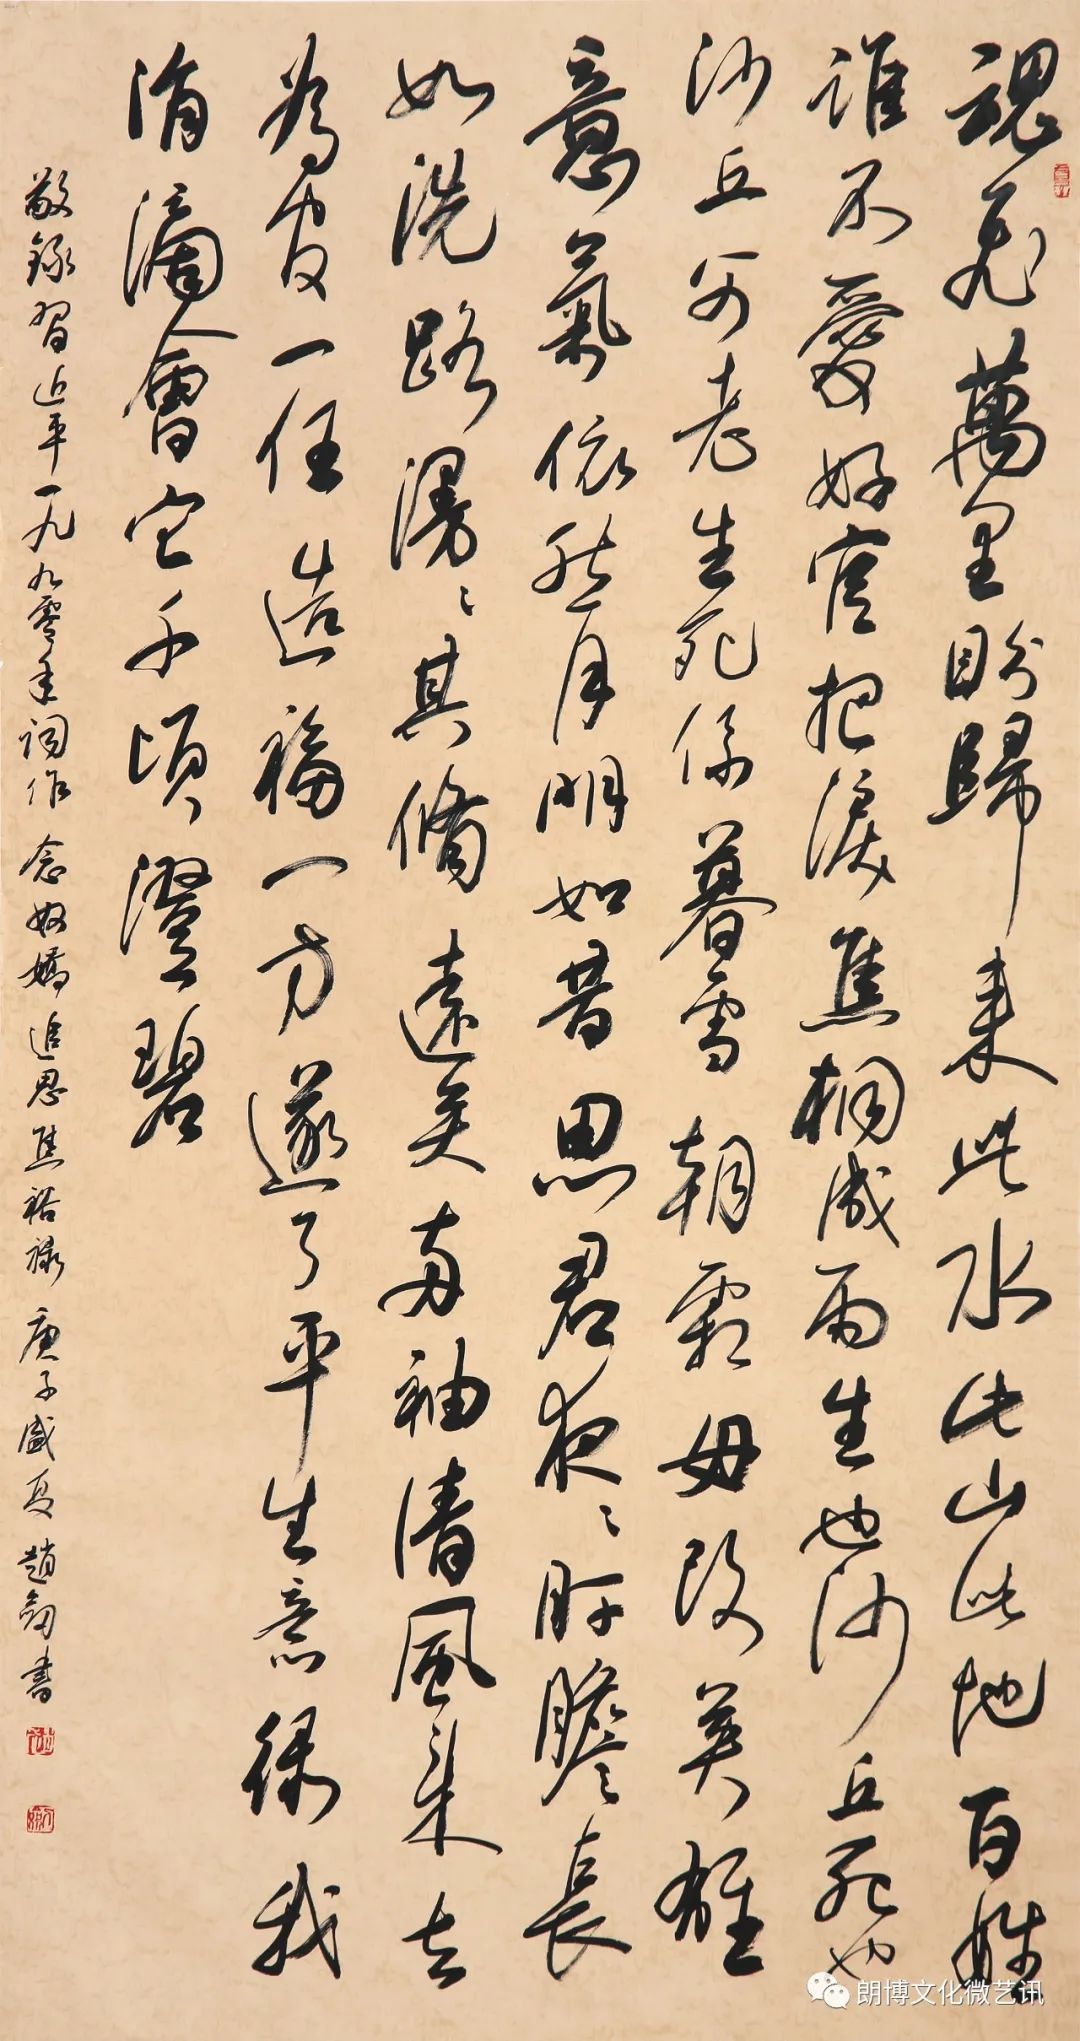 魂飛萬里盼歸來此水此山此地百姓
誰不愛好官把淚焦桐成雨生也沙丘死也
沙丘父老生死係暮雪朝霜毋改英雄
意氣依然月明如昔思君夜〻肝膽長
如洗路漫〻其脩遠矣兩袖清風來去
為官一任造福一方遂了平生意綠我
涓滴會它千頃澄碧
敬錄習近平一九九零年詞作 念奴嬌 追思焦裕祿 庚子盛夏 趙劍書
朗博文化微艺讯